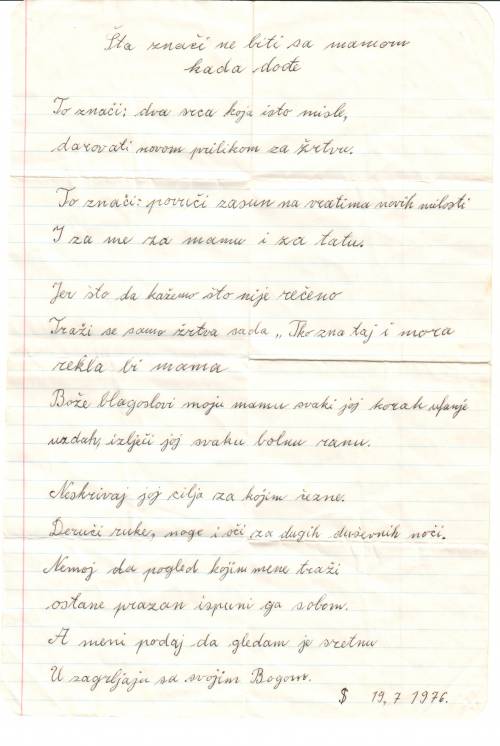 Šta znači ne biti sa mamom
kada dođe
To znači: dva srca koja isto misle,
darovati novom prilikom za žrtvu.
To znači: povući zasun na vratima novih milosti
I za me za mamu i za tatu.
Jer što da kažemo što nije rečeno
Traži se samo žrtva sada „Tko zna taj i mora
rekla bi mama
Bože blagoslovi moju mamu svaki joj korak ufanje
uzdah, izliječi joj svaku bolnu ranu.
Neskrivaj joj cilja za kojim čezne.
ruke, noge i oči za dugih duševnih noći.
Nemoj da pogled kojim mene traži
ostane prazan ispuni ga sobom.
A meni podaj da gledam je sretnu
U zagrljaju sa svojim Bogom.
19,7 1976.